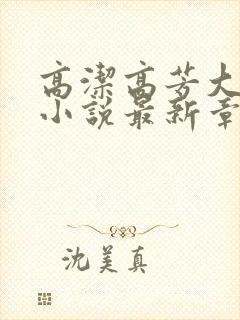 高潔高芳大
小說最新章
沈美真